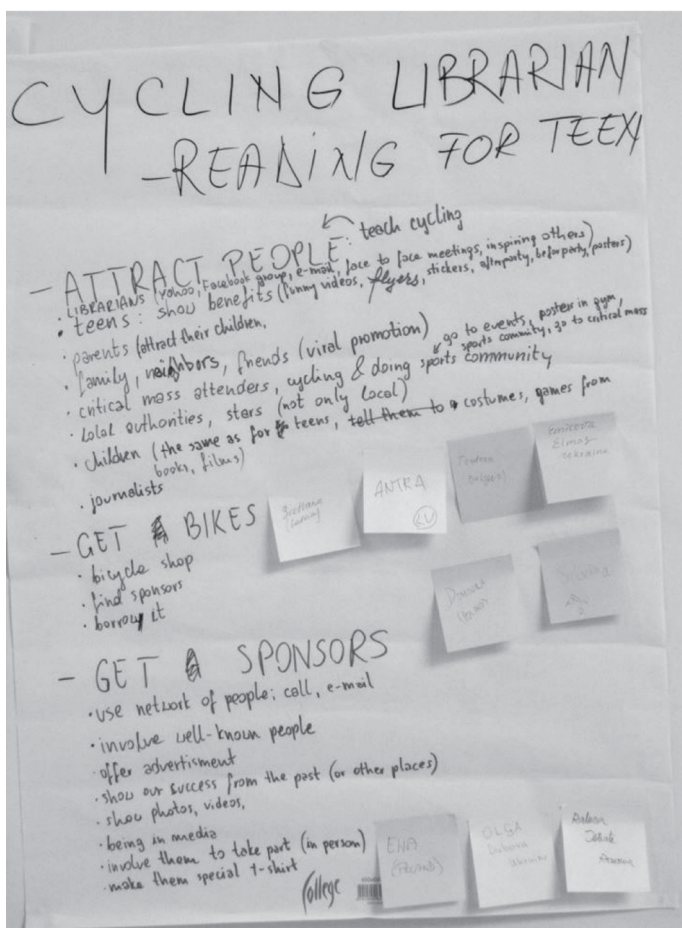 CYCLING LIBRARIAN
-READING FOR TEEN
teach cycling
- ATTRACT PEOPLE:
• LIBRARIANS (Yohoo, Facebook group, e-mail, face to face meetings, inspiring others)
• teens: show benefits (funny videos, flyers, stickers, afterparty, beforparty, posters)
• parents (attract their children,
• family, neighbors, friends (viral promotion)
go to events, poster in gym,
sports community, go to critical mass
• critical mass attenders, cycling & doing sports community
• lolal authorities, stars (not only local)
• children (the same as for teens, tell them to costumes, games from
books, films)
• journalists
- GET BIKES
• bicycle shop
• find sponsors
• borrow it
ANTRA
LV
- GET SPONSORS
• use network of people: call, e-mail
• involve well-known people
• offer advertisment
• show our success from the past (or other places)
• show photos, videos,
• being in media
• involve them to take part (in person)
• make them special t-shirt
College
EWA
(POLAND)
OLGA
Ukraine